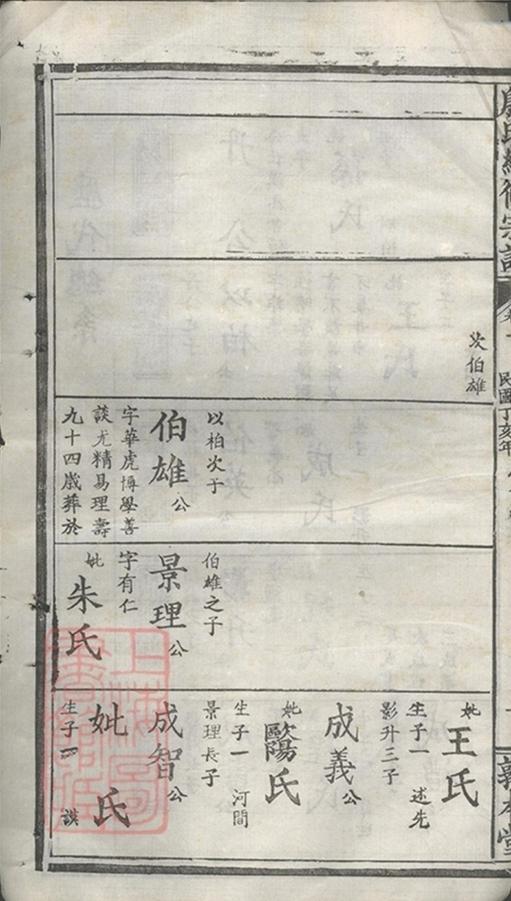 氏續修宗譜
民國丁亥年
次伯雄
以柏次子
伯雄公
字華虎博學善
談尤精易理壽
九十四歲葬於
伯雄之子
景理公
字有仁
妣
朱氏
妣
王氏
生子一 述先
影升三子
成義公
妣
歐陽氏
生子一 河間
景理長子
成智公
妣 氏
生子一 謨
上海圖書館藏